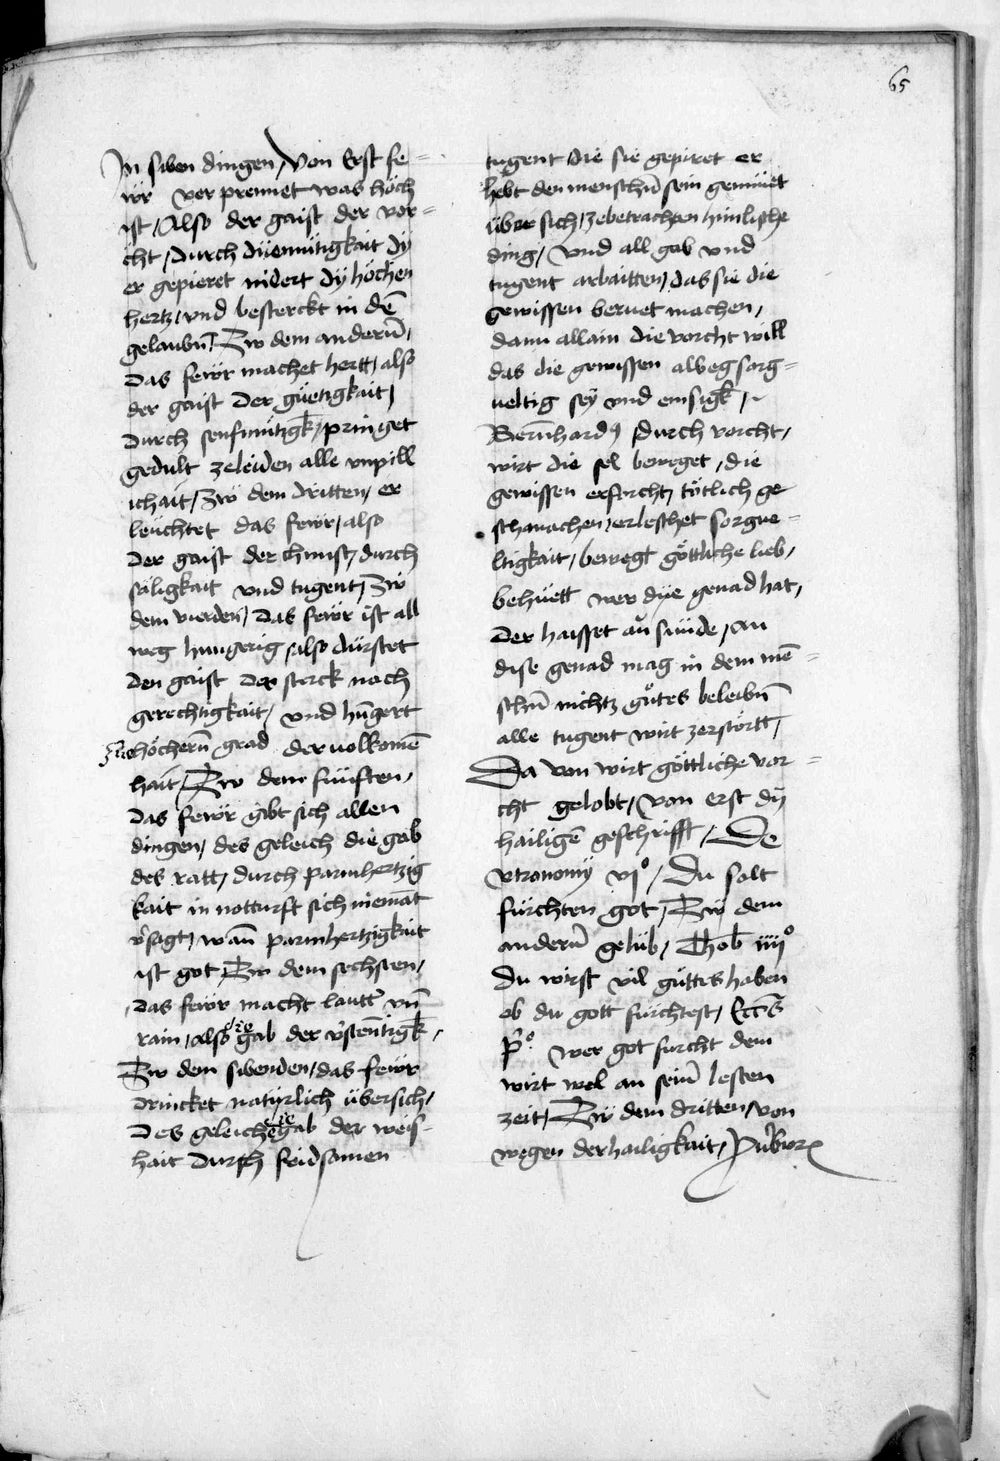 65
In siben dingen / Von Erst fe=
wr ver prennet was höch
ist / Also der gaist der vor=
cht / durch diemütigkait dÿ
er gepieret nidert dÿ höchen
hertz / vnd besterckt in dē
gelaubñ / Zw dem anderñ /
das fewr machet hertt / also
der gaist der güetigkait /
durch senfmütigk̄ / pringet
gedult zeleiden alle vnpill
ichait / Zw dem dritten / er
leüchtet das fewr / also
der gaist der chunst / durch
säligkait vnd tugent / Zw
dem vierden / das fewr ist all
weg hungerig / also dürstet
den gaist der sterck nach
gerechtigkait / vnd hūgert
zw höcherñ grad der volkomē
hait / Zw dem fünften /
das fewr gibt sich allen
dingen / des geleich die gab
des ratt / durch parmhertzig
kait in notturft sich niemāt
v̄sagt / wañ parmhertzigkait
ist got / Zw dem sechsten /
das fewr macht lautt̄ vñ
rain / also die gab der v̄stentigk̄ /
Zw dem sibenden / das fewr
drincket natÿrlich übersich /
Des geleich die gab der weis=
hait durch fridsamen
tugent die sie gepiret er
hebt den menschñ sein gemüet
über sich / zebetrachten himlische
ding / Vnd all gab vnd
tugent arbaitten / das sie die
gewissen beruet machen /
dann allain die vorcht will
das die gewissen albeg sorg=
ueltig seÿ vnd emsigk̄ /
Bernhardꝰ durch vorcht /
wirt die sel beweget / die
gewissen erforcht / tötlich ge
schmachen / erleschet sorgue=
ltigkait / bewegt göttliche lieb /
behüett wer dÿe genad hat /
der haisset an sünde / an
dise genad mag in dem mē=
schñ nichtz gůtes beleibñ
alle tugent wirt zerstörtt /
Da von wirt göttliche vor=
cht gelobt / Von erst dÿ
hailigē geschrifft / De
vtronomÿ vjº / Du solt
fürchten got / Zw dem
anderñ gelüb / Thob̄ iiijº
Du wirst vil güttes haben
ob du gott fürchtest / Ecc̄s
p̄º wer got furcht dem
wirt wol an seinē lesten
zeit / Zw dem dritten / von
wegen der hailigkait /